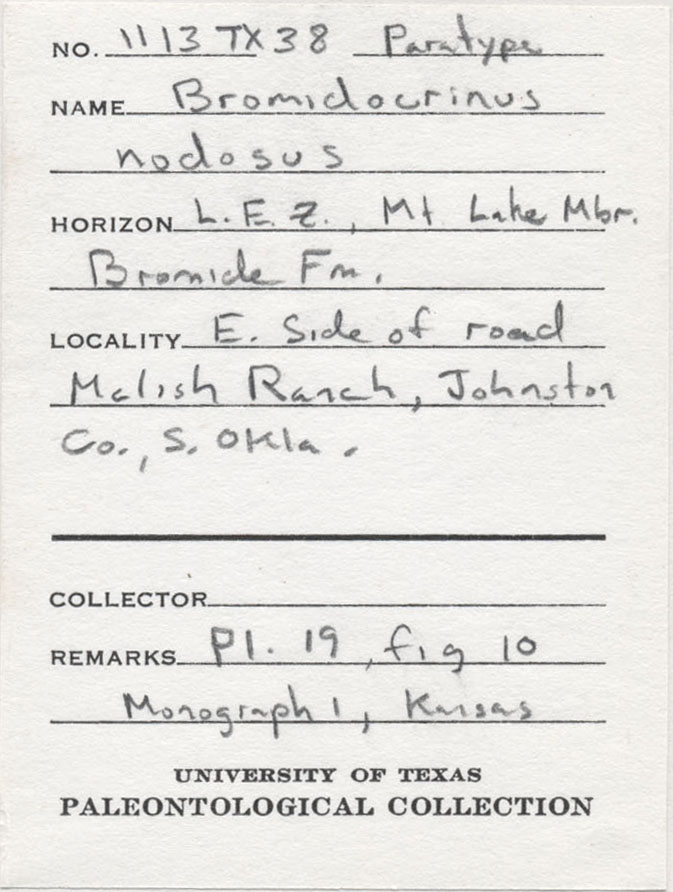 NO. 1113 TX 38 Paratype
NAME Bromidocrinus
nodosus
HORIZON L. E. Z., Mt Lake Mbr.
Bromide Fm.
LOCALITY E. Side of road
Mclish Ranch, Johnston
Co., S. Okla.
COLLECTOR
REMARKS Pl. 19, fig 10
Monograph 1, Kansas
UNIVERSITY OF TEXAS
PALEONTOLOGICAL COLLECTION